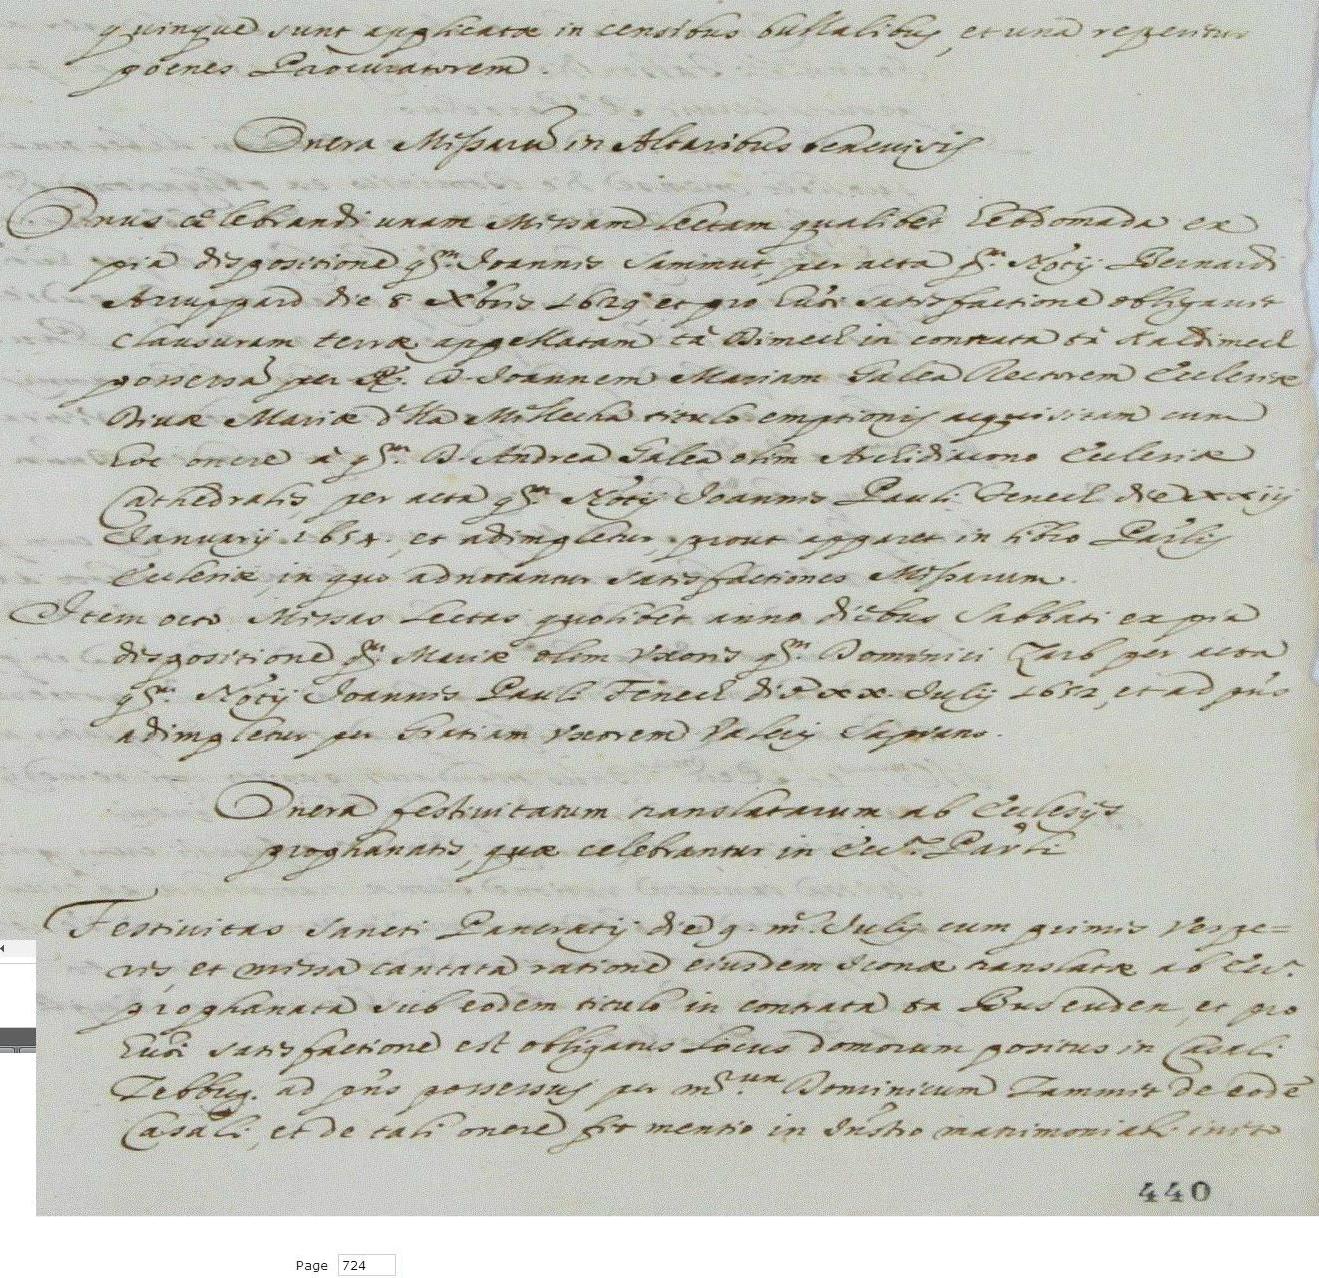 quinque sunt applicatæ in censibus bullalibus, et una reperitur
poenes Procuratorem.
Onera Missarū in Altaribus
Onus cœlebrandi unam Missam lectam qualibet hebdomada ex
pia dispositione qm. Joannis Sammut, per acta qm. Notrij Bernardi
Azzuppard die 8 Xbris 1629 et pro huōi satisfactione obligavit
clausuram terræ appellatam tà in contrata tà
possersā per R. D. Joannem Mariam Galea Rectorem Ecclesiæ
Divæ Mariæ d'lla Mellecha titulo emptionis acquisitam cum
hoc onere à qm. D. Andrea Galea olim Archidiacono Ecclesiæ
Cathedralis, per acta qm. Notrij Joannis Pauli Fenech die xxiij
Januarij 1654, et adimpletur, prout apparet in libro Parlis
Ecclesiæ, in quo adnotantur satisfactiones Missarum.
Item octo Missas lectas quolibet anno diebus Sabbati ex pia
dispositione qm. Mariæ olim Uxoris qm. Dominici Zarb per acta
qm. Notrij Joannis Pauli Fenech die xx Julij 1652, et ad pn̄s
adimpletur per Gratiam Uxorem Valerij Saprano.
Onera festivitatum translatarum ab Ecclesijs
prophanatis, quæ celebrantur in Ecc. Par̄li
Festivitas Sancti Pancratij die 9. m. Julij cum primis Vespe=
ris, et missa cantata ratione eiusdem Iconæ translatæ ab Ecc.
prophanata sub eodem titulo in contrata ta Busenden, et pro
huōi satisfactione est obligatus Locus domorum positus in Casali
Zebbug. ad pn̄s possessus per Dominicum Zammit de eodē
Casali, et de tali onere fit mentio in Instr̄o matrimoniali inito
440
Page 724